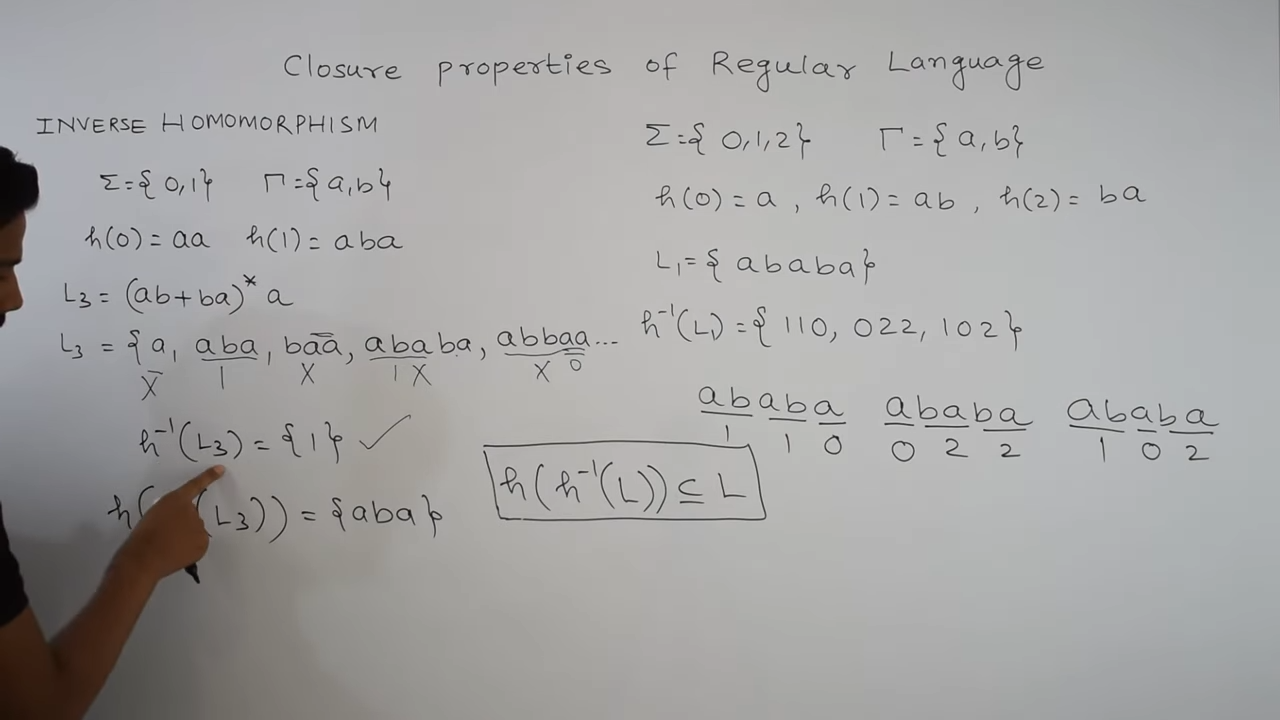 Closure properties of Regular Language
INVERSE HOMOMORPHISM
Σ={ 0,1} Γ={a,b}
h(0) = aa h(1) = aba
L₃ = (ab+ba)* a
L₃ = { a, aba, baa, ababa, abbaa...
X 1 X 1 X X 0
h⁻¹(L₃) = {1} ✓
h( (L₃)) = {aba}
h(h⁻¹(L)) ⊆ L
Σ={ 0,1,2} Γ={a,b}
h(0) = a , h(1) = ab , h(2) = ba
L₁={ ababa}
h⁻¹(L₁) = { 110, 022, 102}
ababa ababa ababa
1 1 0 0 2 2 1 0 2